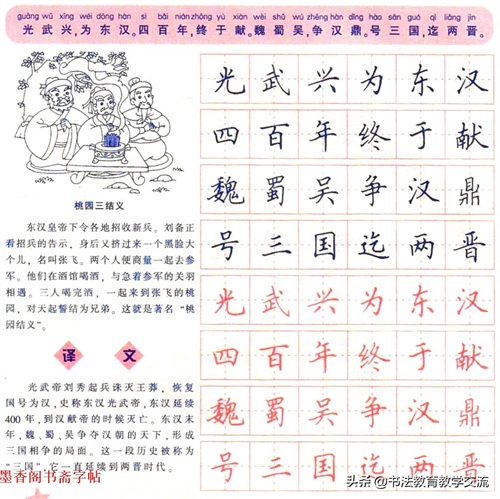 guāng wǔ xīng wéi dōng hàn sì bǎi nián zhōng yú xiàn wèi shǔ wú zhēng hàn dǐng hào sān guó qì liǎng jìn
光武兴，为东汉。四百年，终于献。魏蜀吴，争汉鼎。号三国，迄两晋。
光武兴为东汉
四百年终于献
魏蜀吴争汉鼎
号三国迄两晋
光武兴为东汉
四百年终于献
魏蜀吴争汉鼎
号三国迄两晋
桃园三结义
东汉皇帝下令各地招收新兵。刘备正
看招兵的告示，身后又挤过来一个黑脸大
个儿，名叫张飞。两个人便商量一起去参
军。他们在酒馆喝酒，与急着参军的关羽
相遇。三人喝完酒，一起来到张飞的桃
园，对天起誓结为兄弟。这就是著名“桃
园结义”。
译文
光武帝刘秀起兵诛灭王莽，恢复
国号为汉，史称东汉光武帝，东汉延续
400年，到汉献帝的时候灭亡。东汉末
年，魏、蜀、吴争夺汉朝的天下，形成
三国相争的局面。这一段历史被称为
“三国”，它一直延续到两晋时代。
墨香阁书斋字帖
头条@书法教育教学交流